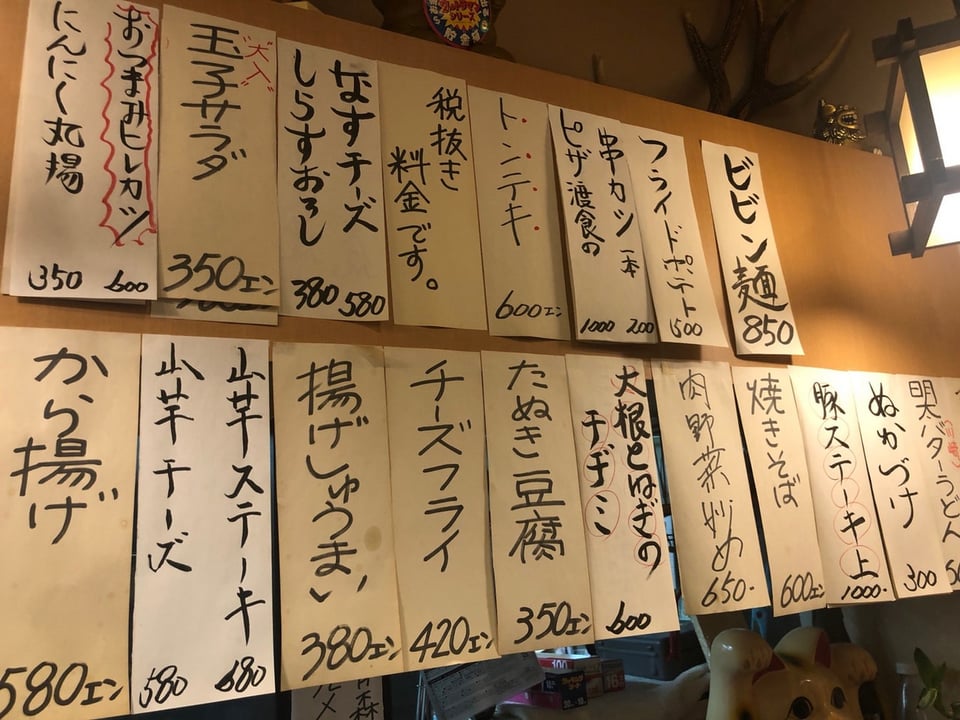 おつまみヒレカツ
600
にんにく丸揚
350
大入
玉子サラダ
350エン
なすチーズ
580
しらすおろし
380
税抜き
料金です。
トンテキ
600エン
串カツ一本
200
ピザ渡食の
1000
フライドポテト
500
ビビン麺
850
から揚げ
580エン
山芋ステーキ
680
山芋チーズ
580
揚げしゅうまい
380エン
チーズフライ
420エン
たぬき豆腐
350エン
大根とねぎの
チヂミ
600
肉野菜炒め
650-
焼きそば
600エン
豚ステーキ上
1000-
ぬかづけ
300
明太バターうどん